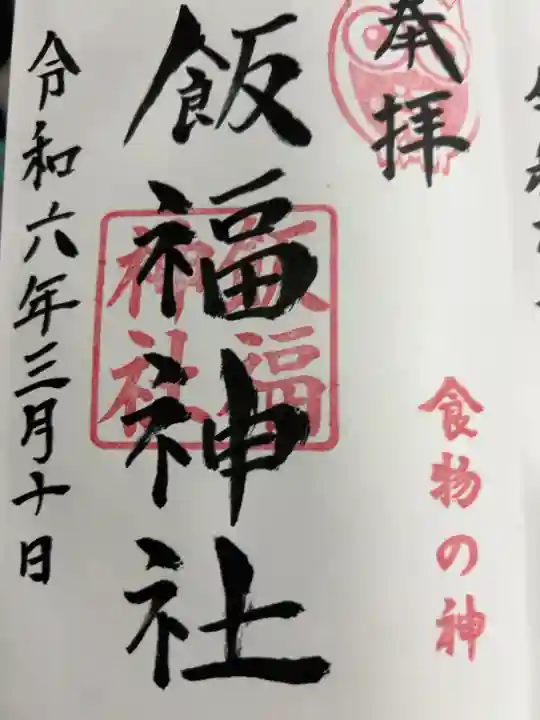 奉拝
食物の神
飯福神社
飯福
神社
令和六年三月十日